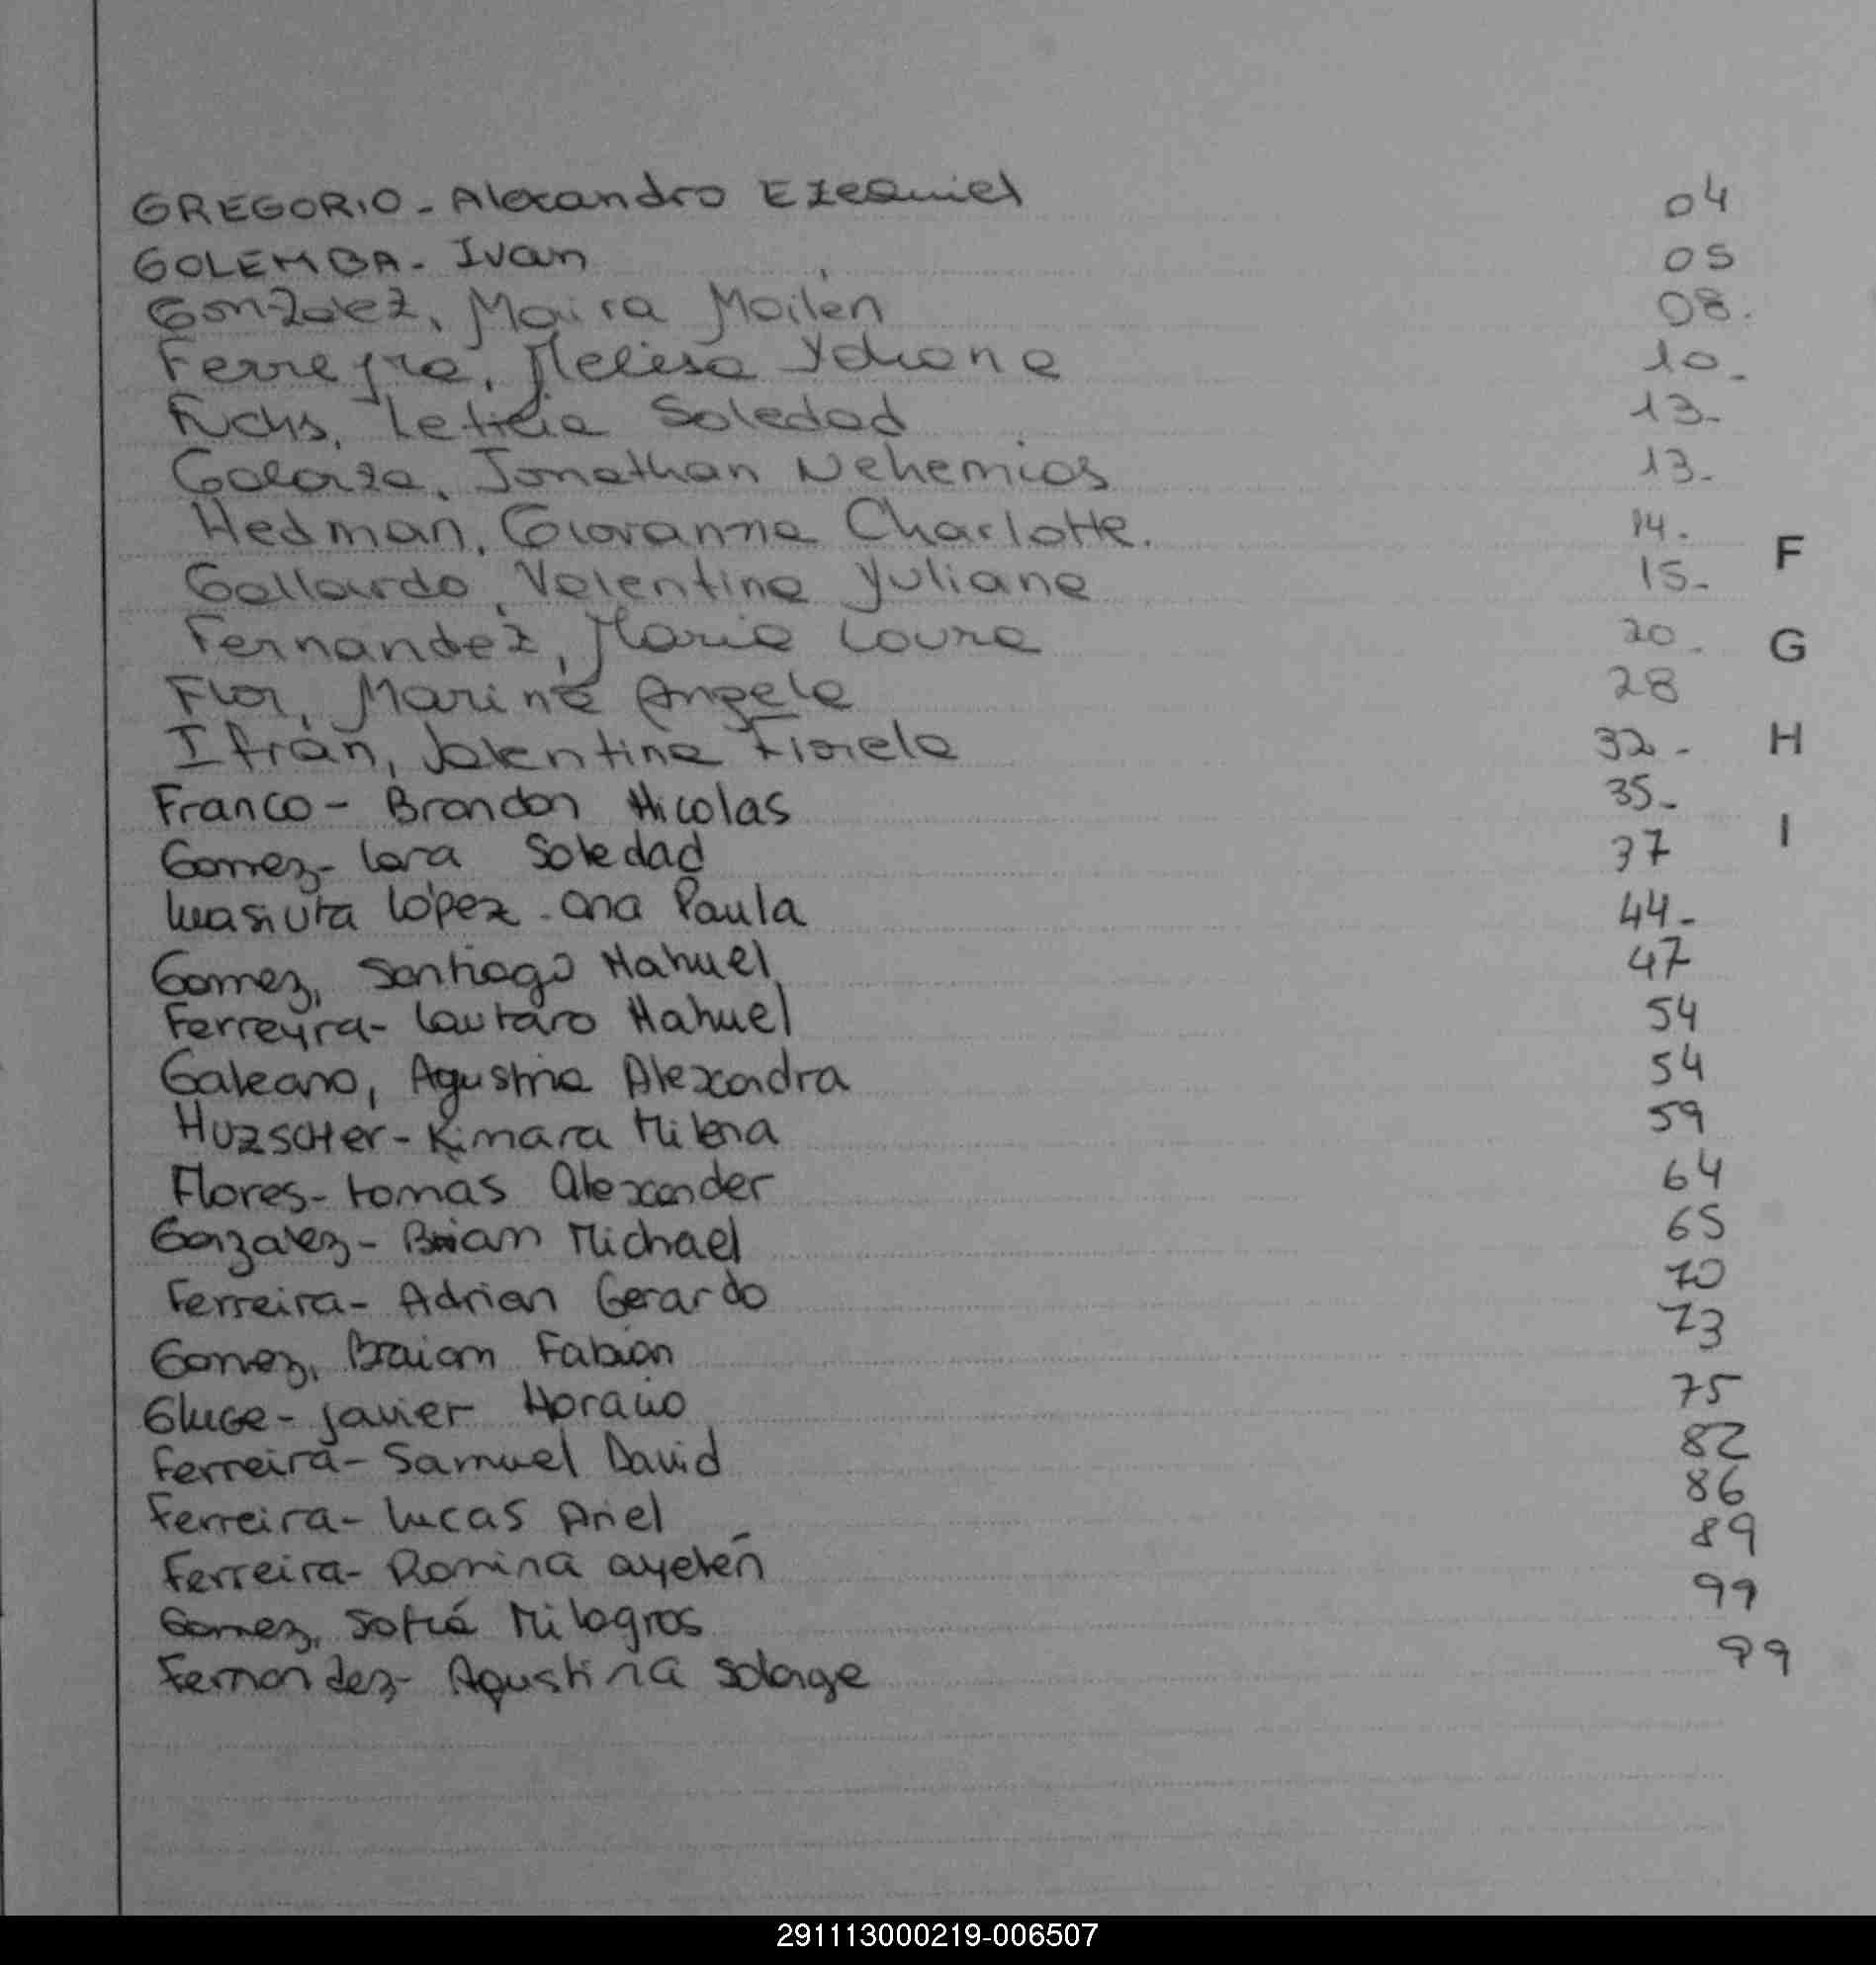 GREGORIO - Alexandro Ezequiel 04
GOLEMBA - Ivan 05
Gonzalez, Maira Mailen 08.
Ferreyra, Melisa 10_
Fuchs, Leticia Soledad 13-
Galarza, Jonathan Nehemias 13-
Hedman, Giovanna Charlotte. 14.
Gallardo, Valentina Yuliana 15-
Fernandez, Maria Laura 20_
Flor, Marina Angela 28
Ifrán, Valentina Fiorela 32-
Franco - Brandon Nicolas 35-
Gomez - Lara Soledad 37
López - Ana Paula 44-
Gomez, Santiago Nahuel 47
Ferreyra - Lautaro Nahuel 54
Galeano, Agustina Alexandra 54
HUZSCHer - Kimara Milena 59
Flores - tomas Alexander 64
Gonzalez - Brian Michael 65
Ferreira - Adrian Gerardo 70
Gomez, Braian Fabián 73
Javier Horacio 75
Ferreira - Samuel David 82
Ferreira - Lucas Ariel 86
Ferreira - Romina ayelén 89
Gomez, Sofiá Milagros 99
Fernandez - Agustina Solange 99
F
G
H
I
291113000219-006507